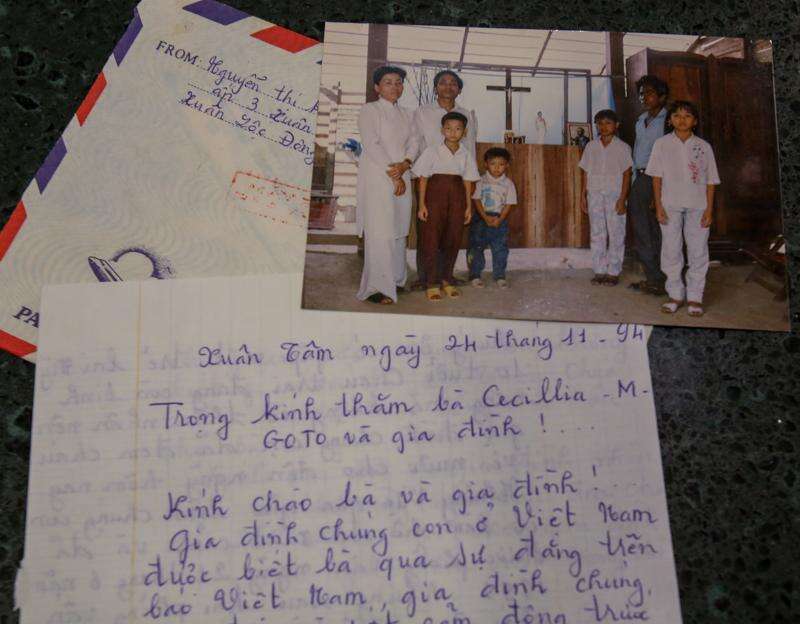 FROM: Nguyễn thị
ấp 3 Xuân
Xuân Lộc Đồng
PA
Xuân Tâm ngày 24 tháng 11 - 94
Trọng kính thăm bà Cecillia - M -
GOTO và gia đình ! ....
Kính chào bà và gia đình ! ...
Gia đình chúng con ở Việt Nam
được biết bà qua sự đăng trên
báo Việt Nam, gia đình chúng
động trước